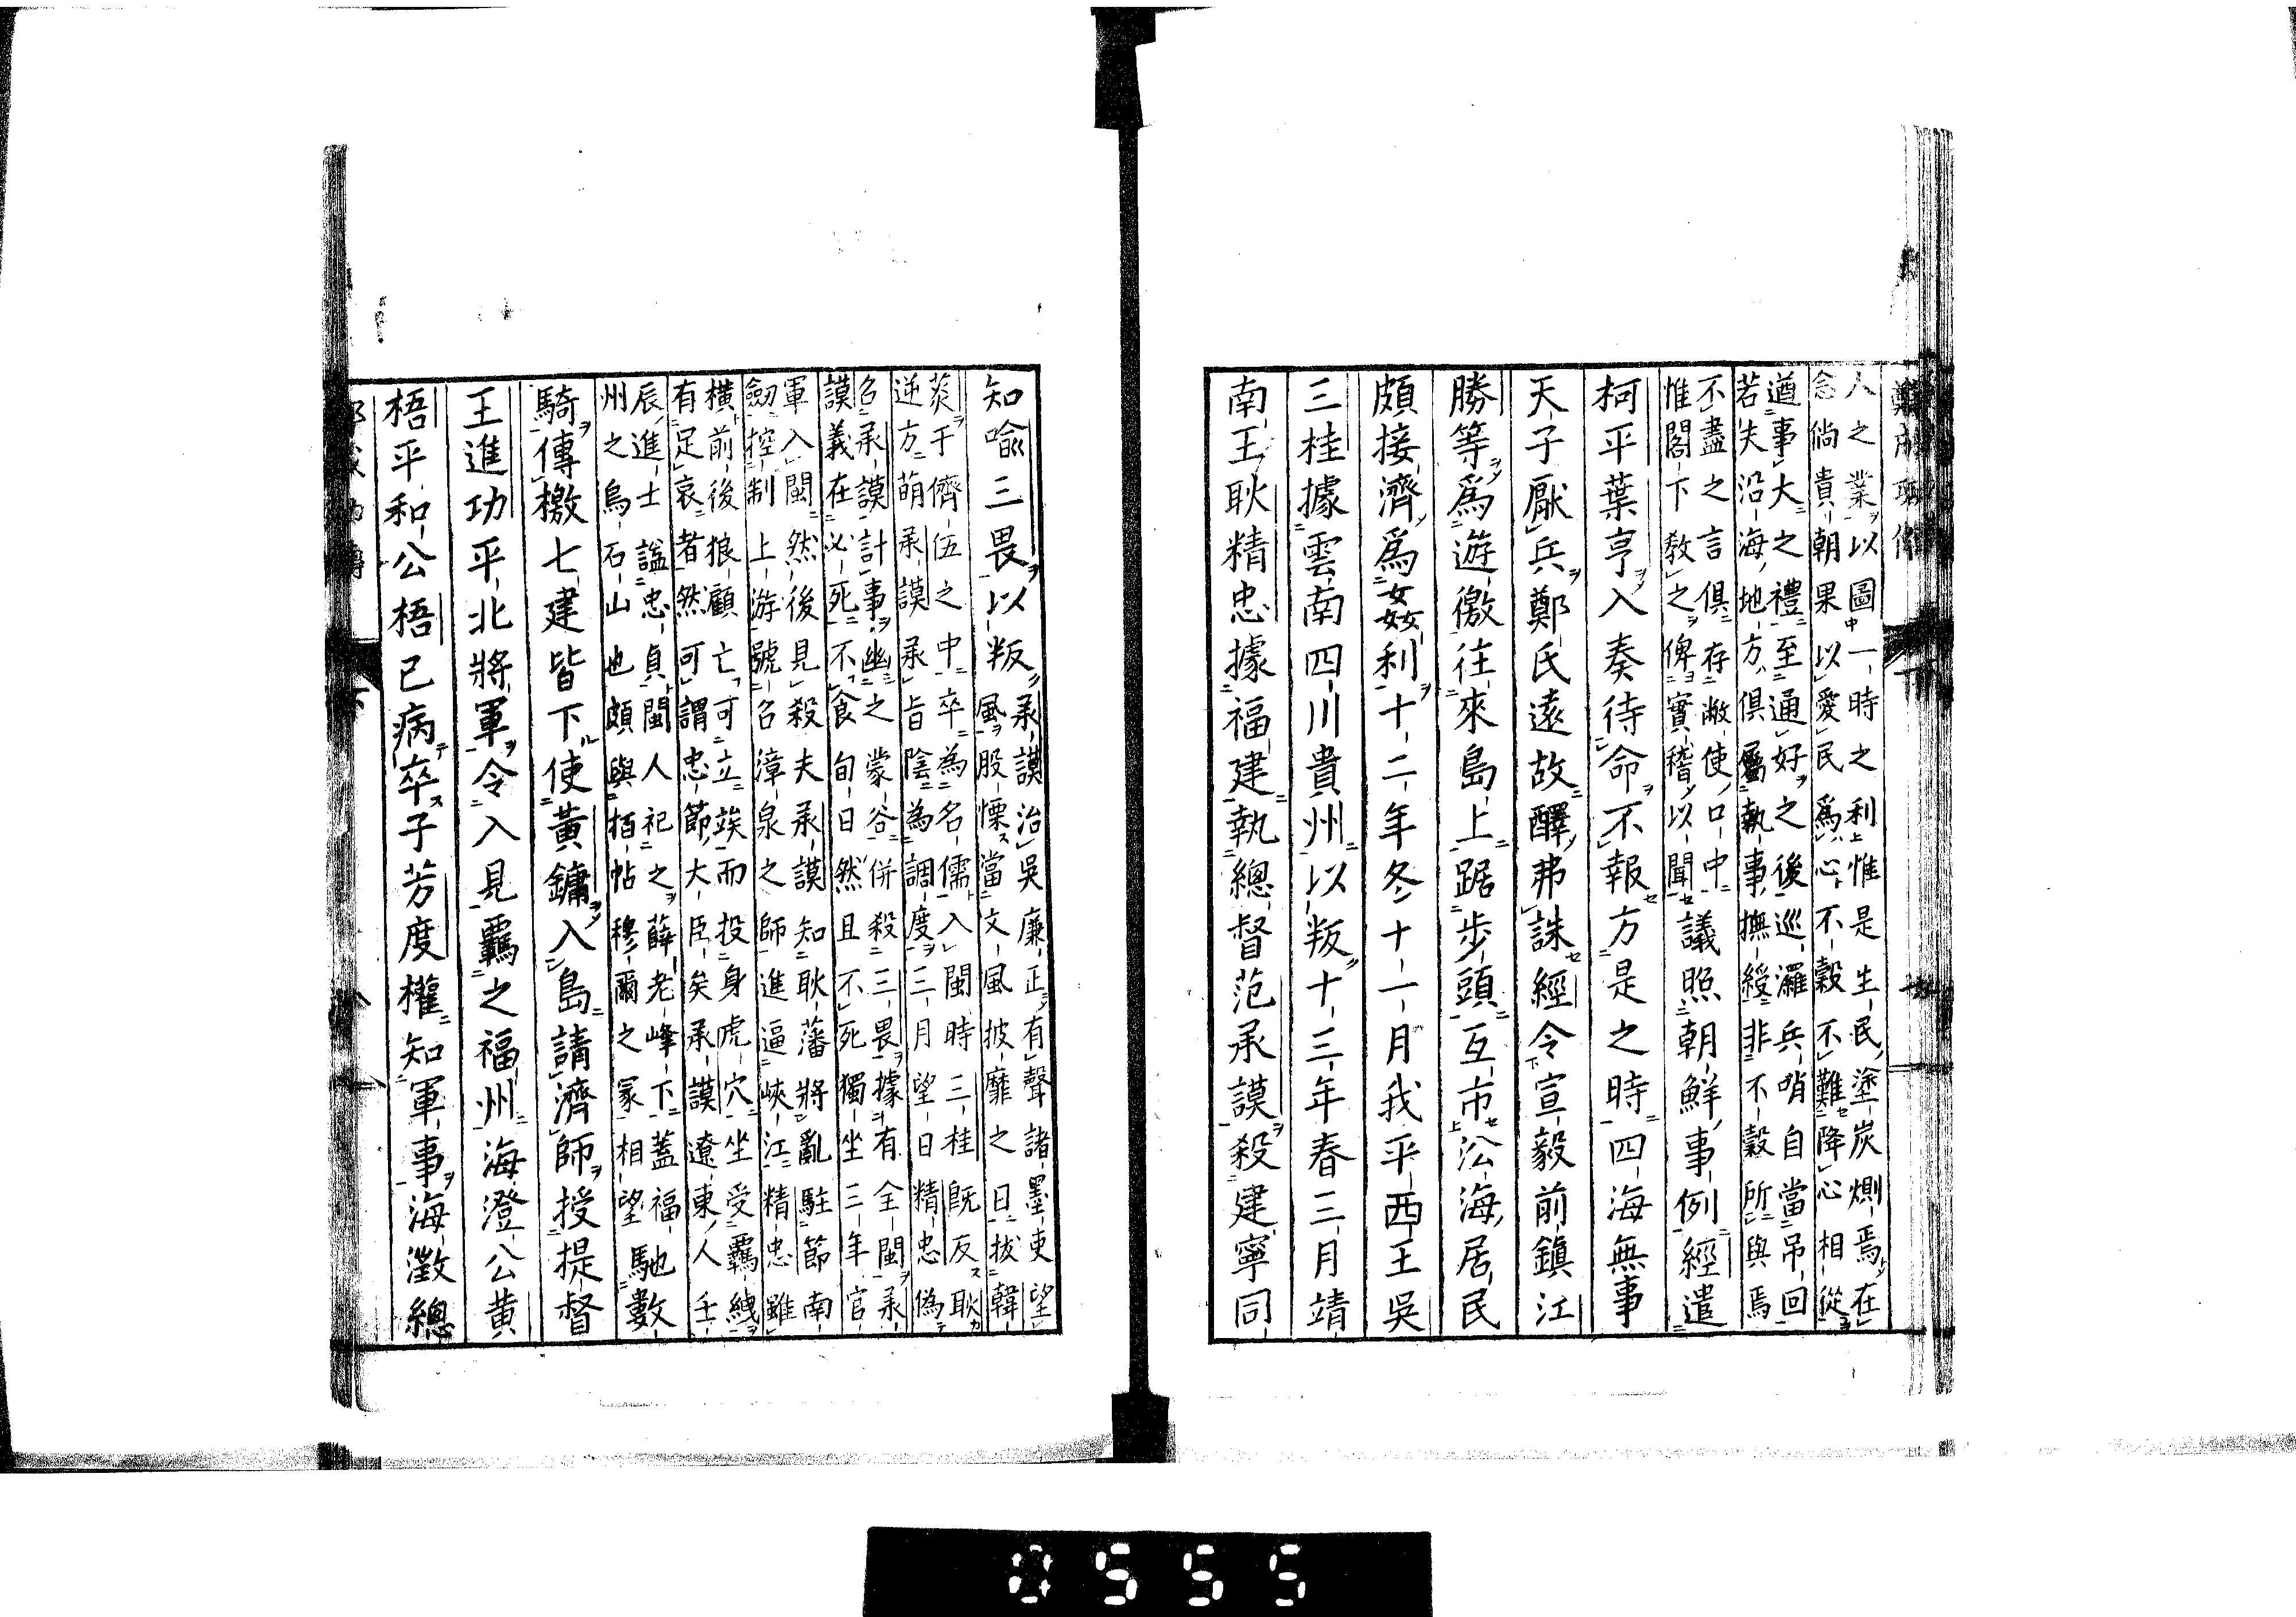 人之業以圖一時之利惟是生民塗炭惻焉在
念倘貴朝果以愛民爲心不穀不難降心相從
遵事大之禮至通好之後巡邏兵哨自當吊回
若失沿海地方俱屬執事撫綏非不穀所與焉
不盡之言俱存敝使口中
惟閣下教之俾實稽以聞議照朝鮮事例經遣
柯平葉亨入奏待命不報方是之時四海無事
天子厭兵鄭氏遠故釋弗誅經令宣毅前鎭江
勝等爲遊徼往來島上踞步頭互市沿海居民
頗接濟爲姦利十二年冬十一月我平西王吳
三桂據雲南四川貴州以叛十三年春三月靖
南王耿精忠據福建執總督范承謨殺建寧同
知喩三畏以叛
承謨治吳廉正有聲諸墨吏望
風股慄當文風披靡之日拔韓
菼于儕伍之中卒為名儒入閩時三桂既反耿
逆方萌承謨承旨陰為調度三月望日精忠偽
召承謨計事幽之蒙谷併殺三畏據有全閩承
謨義在必死不食旬日然且不死獨坐三年官
軍入閩然後見殺夫承謨知耿藩將亂駐節南
劒控制上游號召漳泉之師進逼峽江精忠雖
橫前後狼顧亡可立竢而投身虎穴坐受覊紲
有足哀者然可謂忠節大臣矣承謨遼東人壬
辰進士諡忠貞閩人祀之薛老峰下蓋福
州之烏石山也頗與栢帖穆爾之冢相望馳數
騎傳檄七建皆下使黃鏞入島請濟師授提督
王進功平北將軍令入見覊之福州海澄公黃
梧平和公梧已病卒子芳度權知軍事海澂總
0555